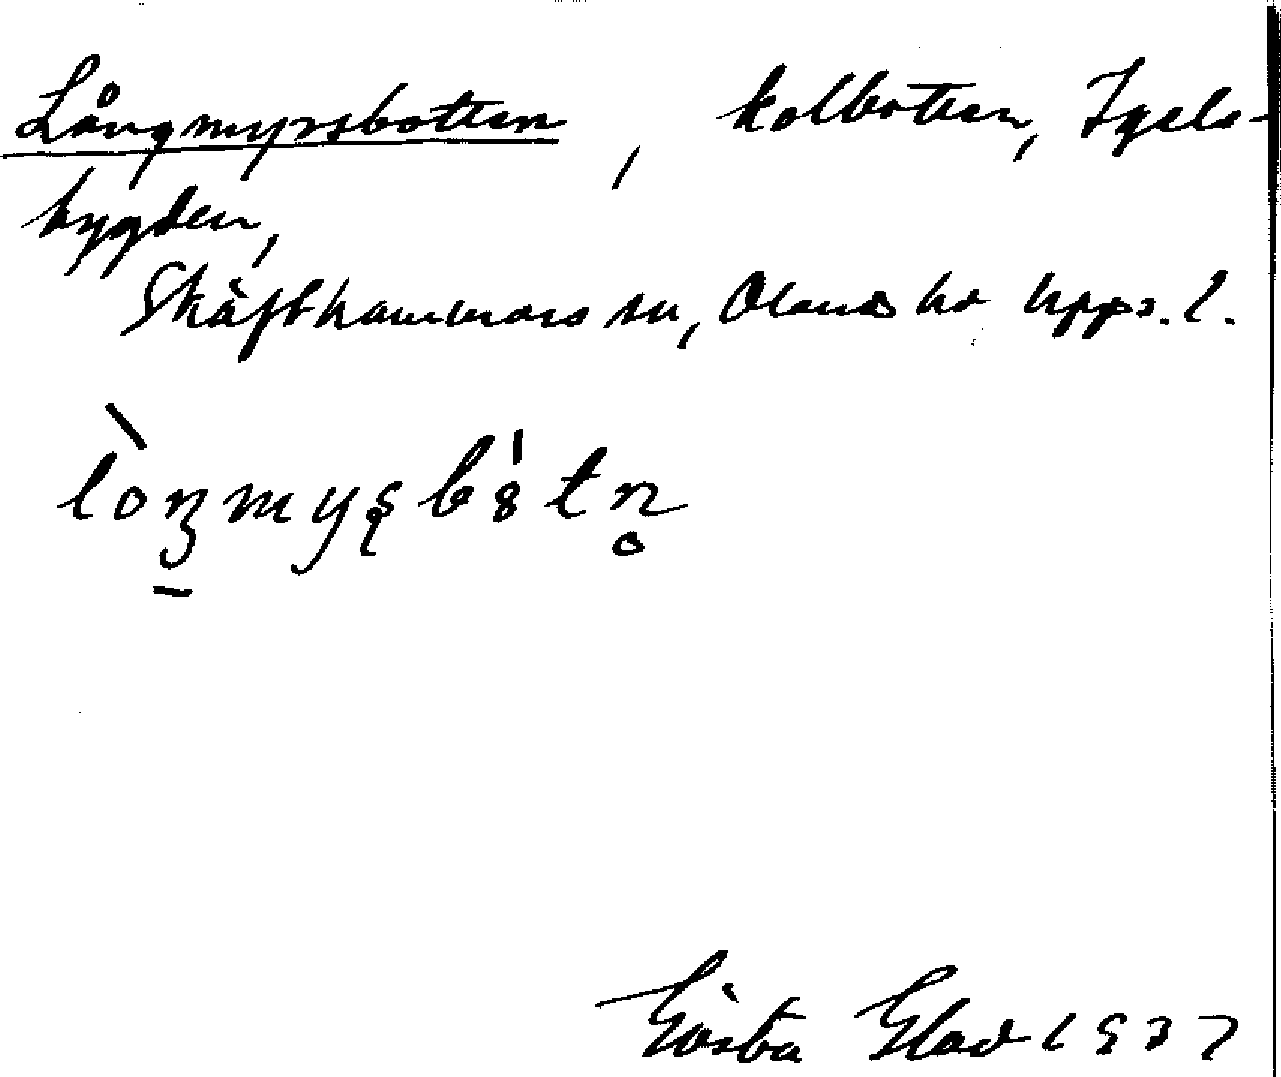 Långmyrsbotten, kolbotten, Igels-
bygden,
Skäfthammars sn, Olands hd Upps. l.
lòŋmyʂbȯtn̥
Gösta Elad 1937